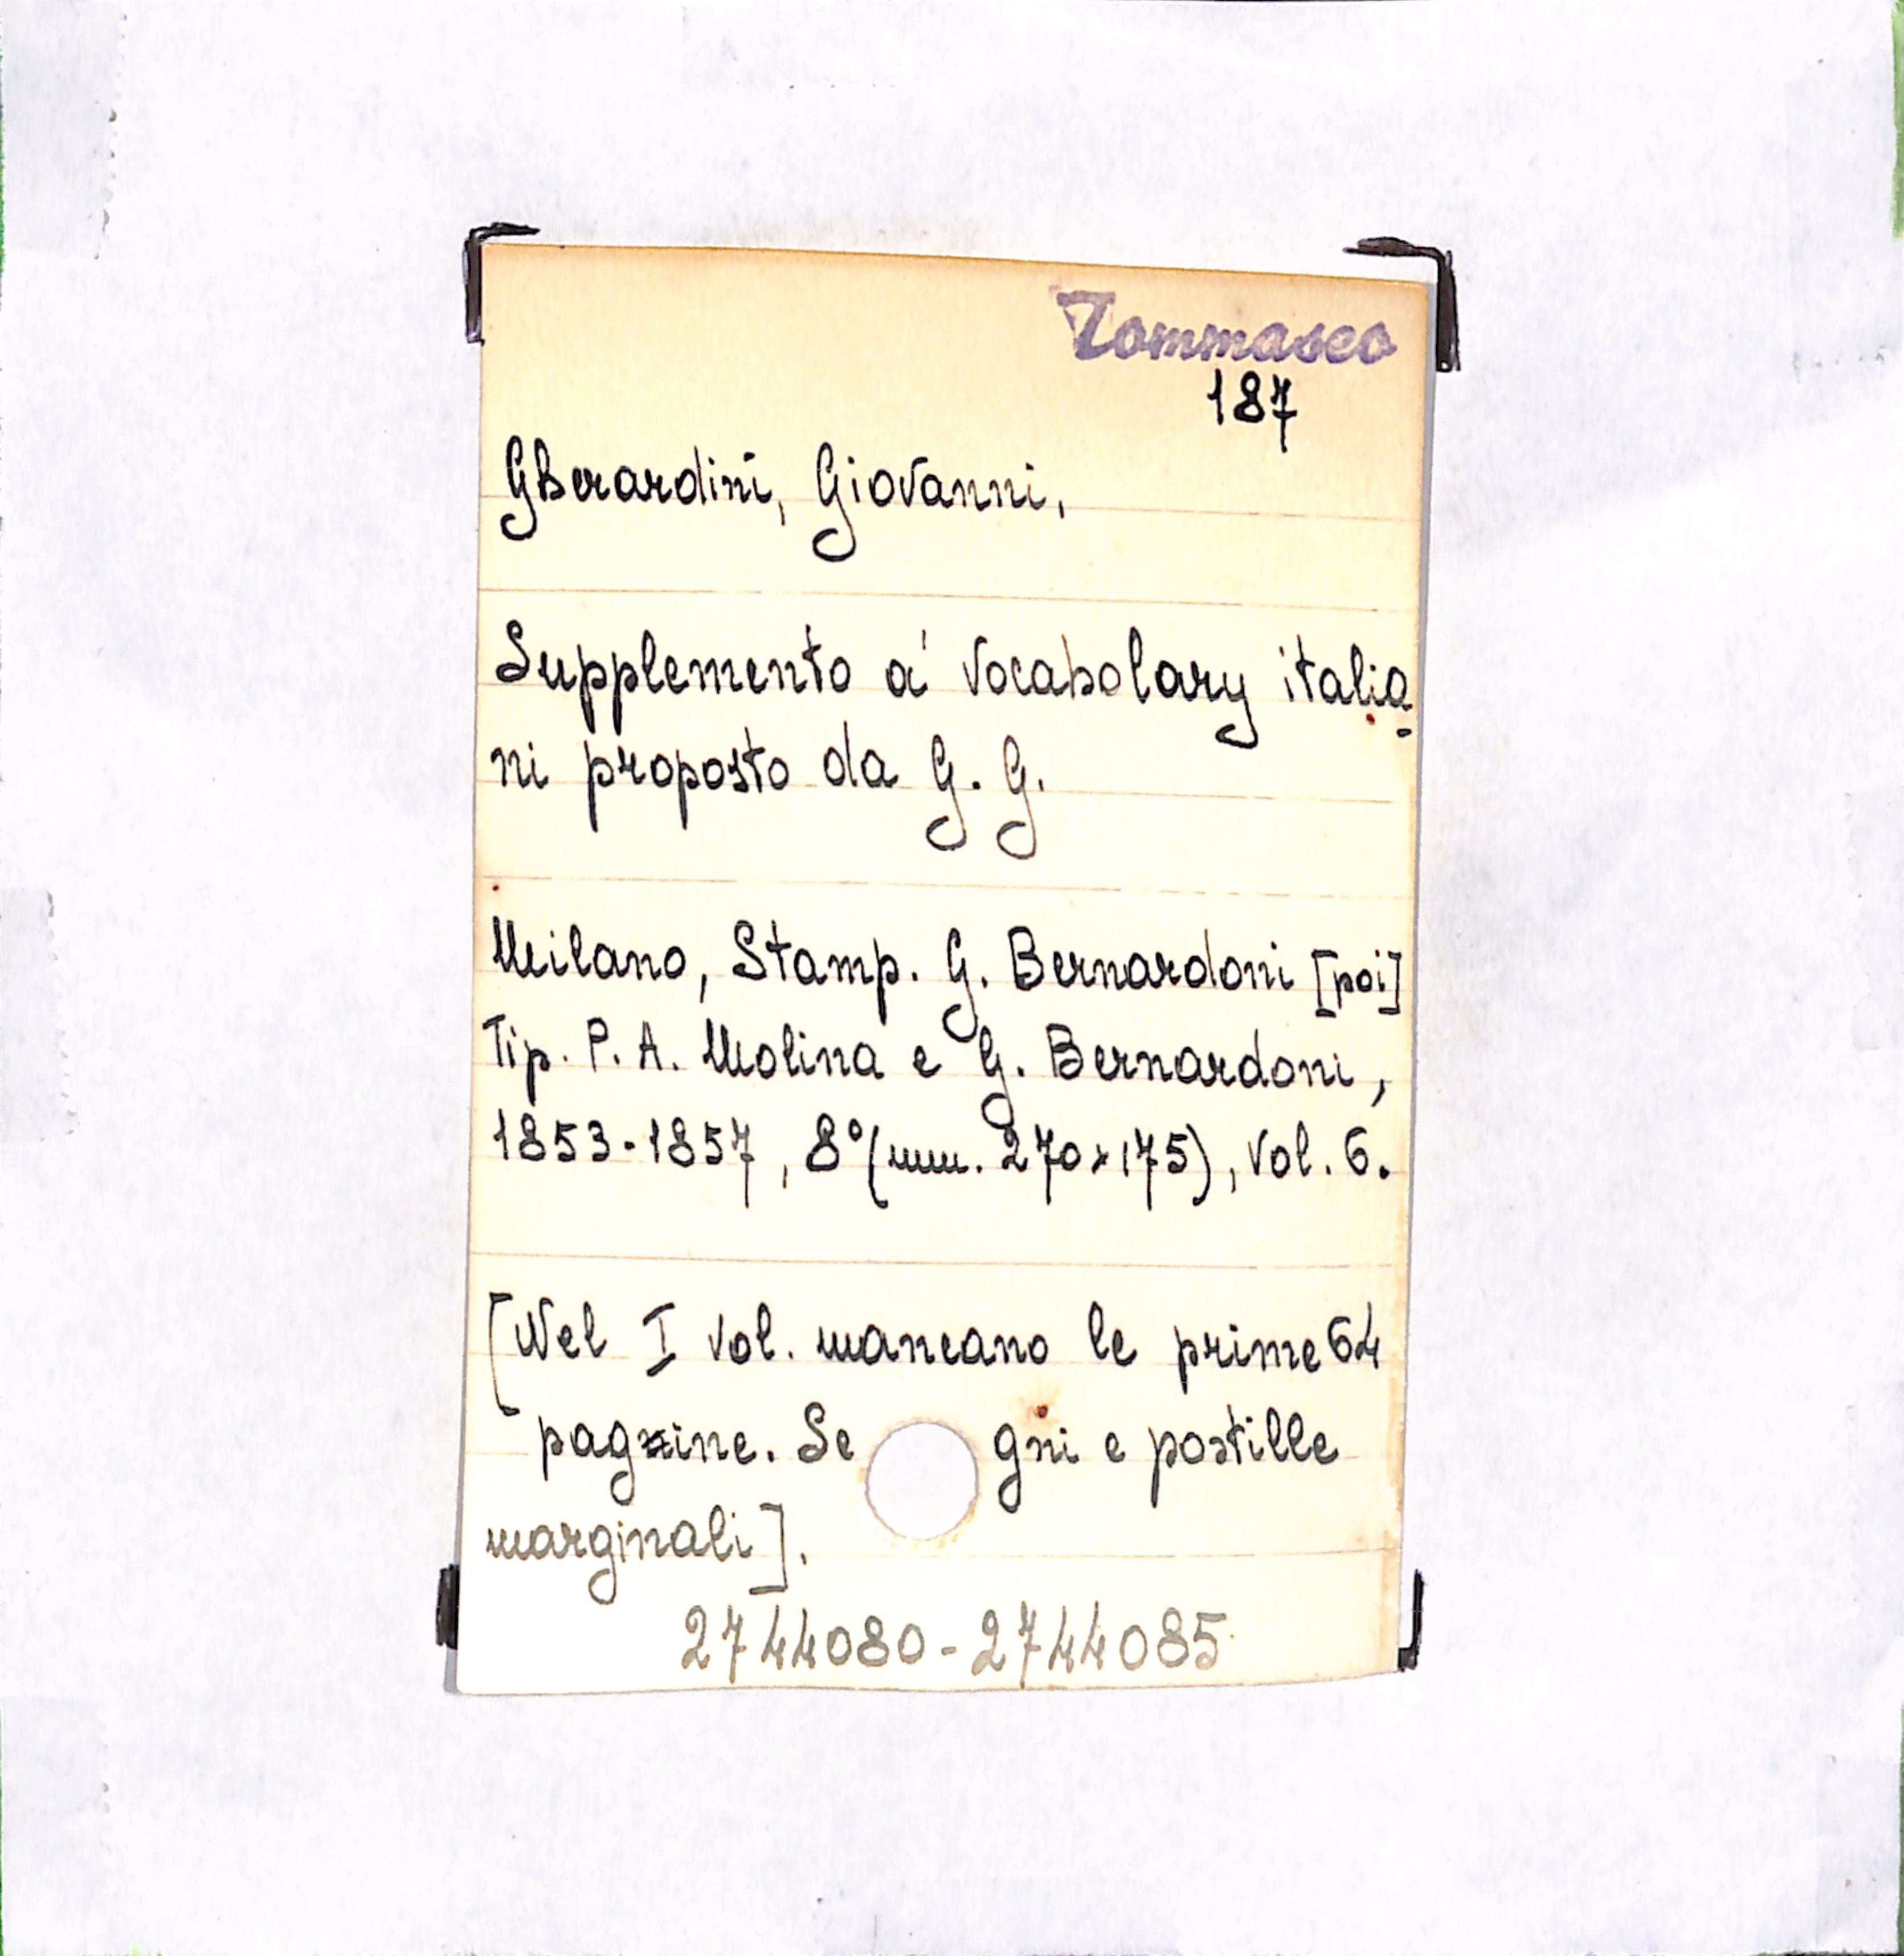 Tommaseo
187
Gherardini, Giovanni,
Supplemento a' vocabolary italia-
ni proposto da G. G.
Milano, Stamp. G. Bernardoni [poi]
Tip. P. A. Molina e G. Bernardoni,
1853-1857, 8° (mm. 270x175), vol. 6.
[Nel I vol. mancano le prime 64
pagine. Se gni e postille
marginali].
2744080-2744085